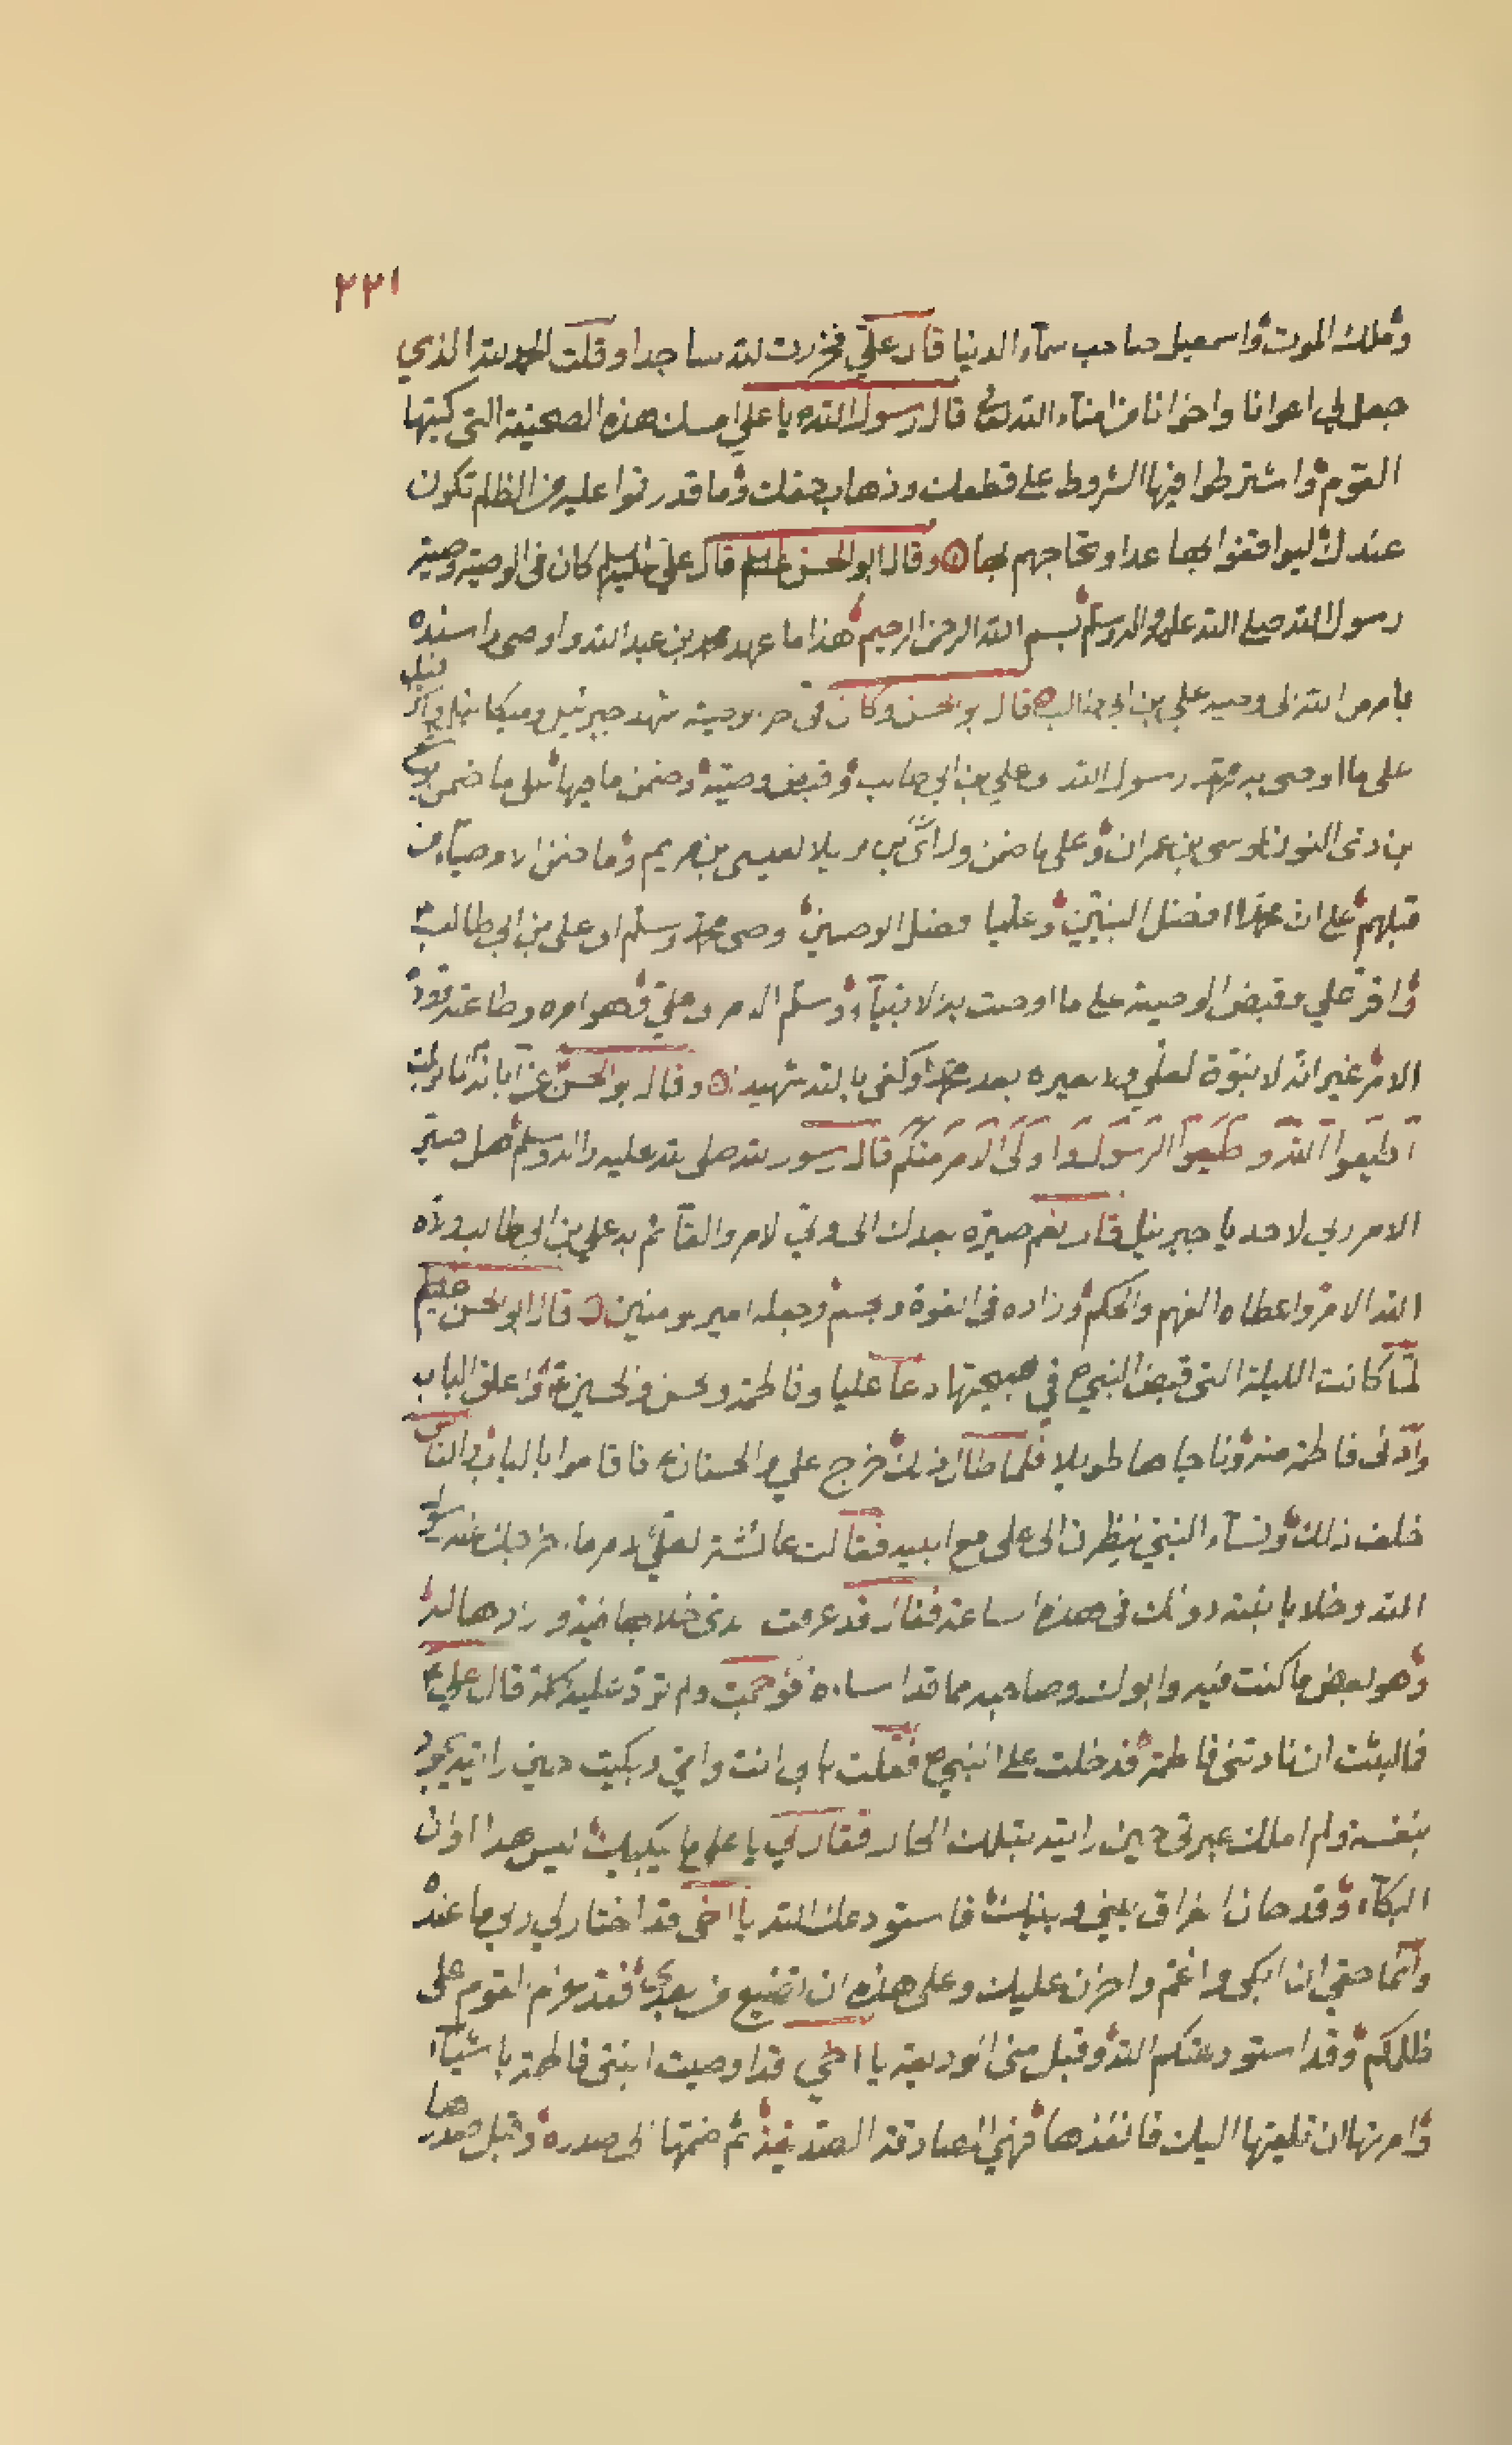 ٢٢١
وملك الموت واسمعيل صاحب سمآء الدنيا قال علي فخررت لله ساجدا وقلت الحمد لله الذي
جعل لي اعوانا واخوانا من امنآء الله قال رسول الله يا علي امسك هذه الصحيفة التي كتبها
القوم واشترطوا فيها الشروط على قطعك وذهاب حقك وما قدرتموا عليه من الظلم تكون
عندك ليوافقوا بها غدا وتحاجهم بها وقال ابو الحسن قال علي كان في الوصية وصية
رسول الله صلى الله عليه واله وسلم بسم الله الرحمن الرحيم هذا ما عهد محمد بن عبد الله واوصى واسنده
بامر من الله الى وصيه علي بن ابي طالب قال بو الحسن وكان في الوصية شهد جبرئيل وميكائيل
على ما اوصى به محمد رسول الله علي بن ابي طالب وقبض وصيته وضمن ما فيها على ما ضمن
بن ذى النون لموسى بن عمران وعلى ما ضمن بن لعيسى بن مريم وما ضمن الاوصيآء من
قبلهم على ان محمدا افضل النبيين وعليا فضل الوصيين وصى محمد وسلم الى علي بن ابي طالب
واقر علي وقبض الوصية على ما اوصت به الانبيآء وسلم الامر علي وهو امره وطاعته
الامر غير انه لا نبوة لعلي ولا لغيره بعد محمد وكفى بالله شهيدا وقال بو الحسن عن آبائه
اطيعوا الله و طيعوا الرسول واولى الامر منكم قال رسول الله صلى الله عليه واله وسلم هل صير
الامر ربي لاحد يا جبرئيل قال نعم صيره بعدك الى ولي لامر والقآئم به علي بن ابي طالب ولاه
الله الامر واعطاه الفهم والحكم وزاده في القوة والجسم وجعله امير المومنين قال ابو الحسن
لما كانت الليلة التي قبض النبي في صبيحتها دعا عليا وفاطمة والحسن والحسين واغلق الباب
وادنى فاطمة منه وناجاها طويلا فلما طال ذلك خرج علي والحسنان فاقاموا بالباب والناس
خلف ذلك ونسآء النبي ينظرن الى علي مع ابنيه فقالت عائشة لعلي لامر ما اخرجك عنه رسول
الله وخلا بابنته دونك في هذه الساعة فقال قد عرفت الذى خلا بها فيه و رادها له
وهو بعض ما كنت فيه وابوك وصاحبه مما قد اساءه فوجمت ولم ترد عليه كلمة قال علي
فما لبثت ان نادتني فاطمة فدخلت على النبي فقلت بابي انت وامي وبكيت حين رايته يجود
بنفسه ولم املك عبرتي حين رايته بتلك الحال فقال لي يا علي ما يبكيك ليس هذا اوان
البكآء وقد حان الفراق بيني وبينك فاستودعك الله يا اخي قد اختار لي ربي ما عنده
وانما حقي ان ابكى واغتم واحزن عليك وعلى هذه ان تضيع من بعدي فقد عزم القوم على
ظلمكم وقد استودعتكم الله وقبل مني الوديعة يا اخي قد اوصيت ابنتي فاطمة باشيآء
وامرتها ان تلقيها اليك فانفذها فهي الصادقة الصديقة ثم ضمها الى صدره وقبل صدرها